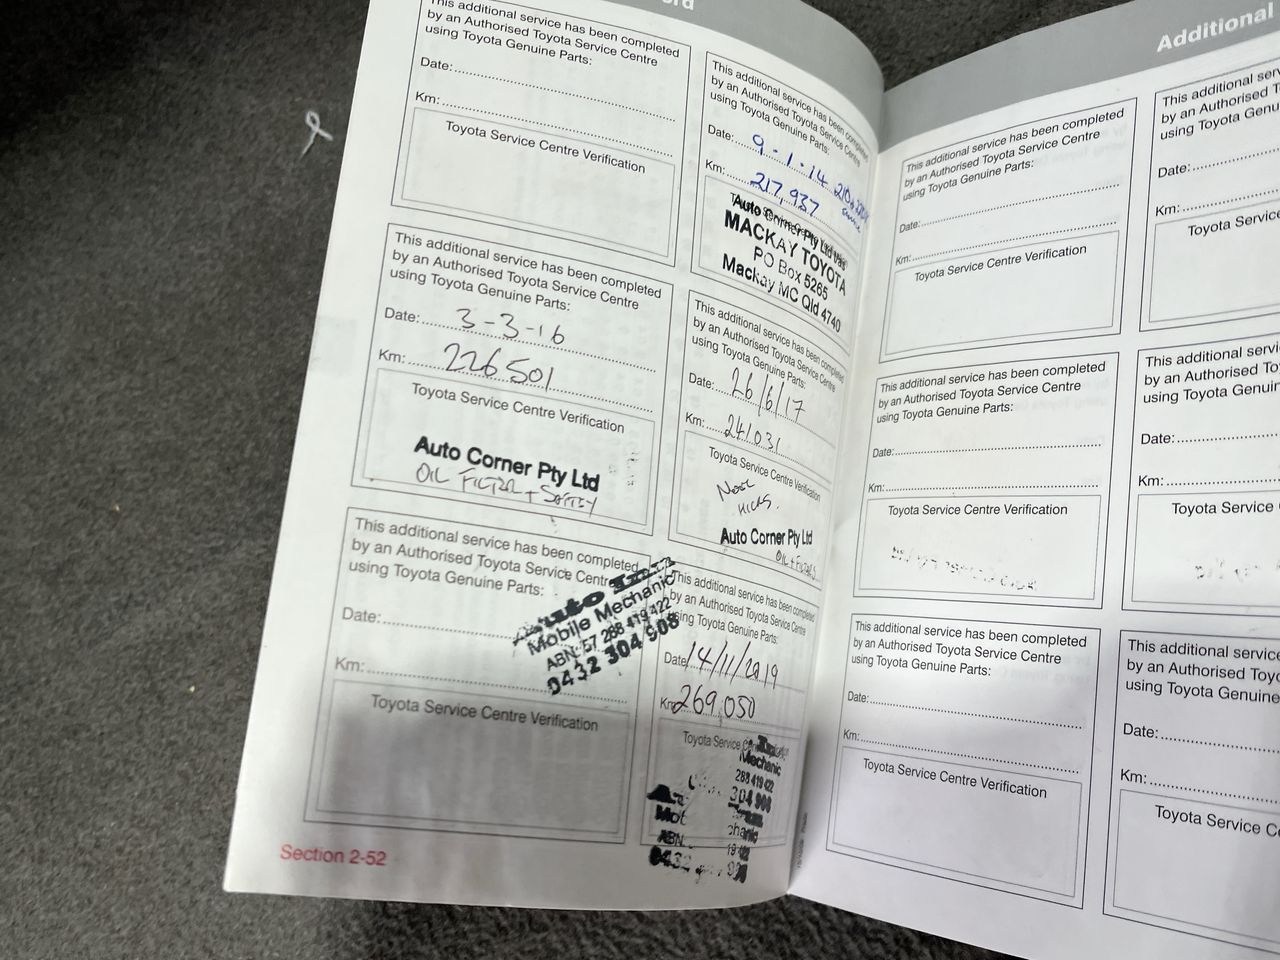 This additional service has been completed
by an Authorised Toyota Service Centre
using Toyota Genuine Parts:
Date:
Km:
Toyota Service Centre Verification
This additional service has been completed
by an Authorised Toyota Service Centre
using Toyota Genuine Parts:
Date: 9-1-14
Km: 217,937
Auto Corner Pty Ltd
MACKAY TOYOTA
PO Box 5265
Mackay MC Qld 4740
This additional service has been completed
by an Authorised Toyota Service Centre
using Toyota Genuine Parts:
Date: 3-3-16
Km: 226501
Toyota Service Centre Verification
Auto Corner Pty Ltd
OIL FILTER + SAFTEY
This additional service has been completed
by an Authorised Toyota Service Centre
using Toyota Genuine Parts:
Date: 26/6/17
Km: 241031
Toyota Service Centre Verification
Auto Corner Pty Ltd
OIL + FILTERS
This additional service has been completed
by an Authorised Toyota Service Centre
using Toyota Genuine Parts:
Date:
Km:
Toyota Service Centre Verification
Auto
Mobile Mechanic
ABN: 57 288 419 422
0432 304 908
This additional service has been completed
by an Authorised Toyota Service Centre
using Toyota Genuine Parts:
Date 14/11/2019
Km 269,050
Toyota Service
Mechanic
288 419 422
304 908
ABN
0432
Section 2-52
Additional
This additional service has been completed
by an Authorised Toyota Service Centre
using Toyota Genuine Parts:
Date:
Km:
Toyota Service Centre Verification
This additional service
by an Authorised
using Toyota
Date:
Km:
Toyota Service
This additional service has been completed
by an Authorised Toyota Service Centre
using Toyota Genuine Parts:
Date:
Km:
Toyota Service Centre Verification
This additional servi
by an Authorised Toy
using Toyota Genuin
Date:
Km:
Toyota Service
This additional service has been completed
by an Authorised Toyota Service Centre
using Toyota Genuine Parts:
Date:
Km:
Toyota Service Centre Verification
This additional service
by an Authorised Toyo
using Toyota Genuine
Date:
Km:
Toyota Service Ce